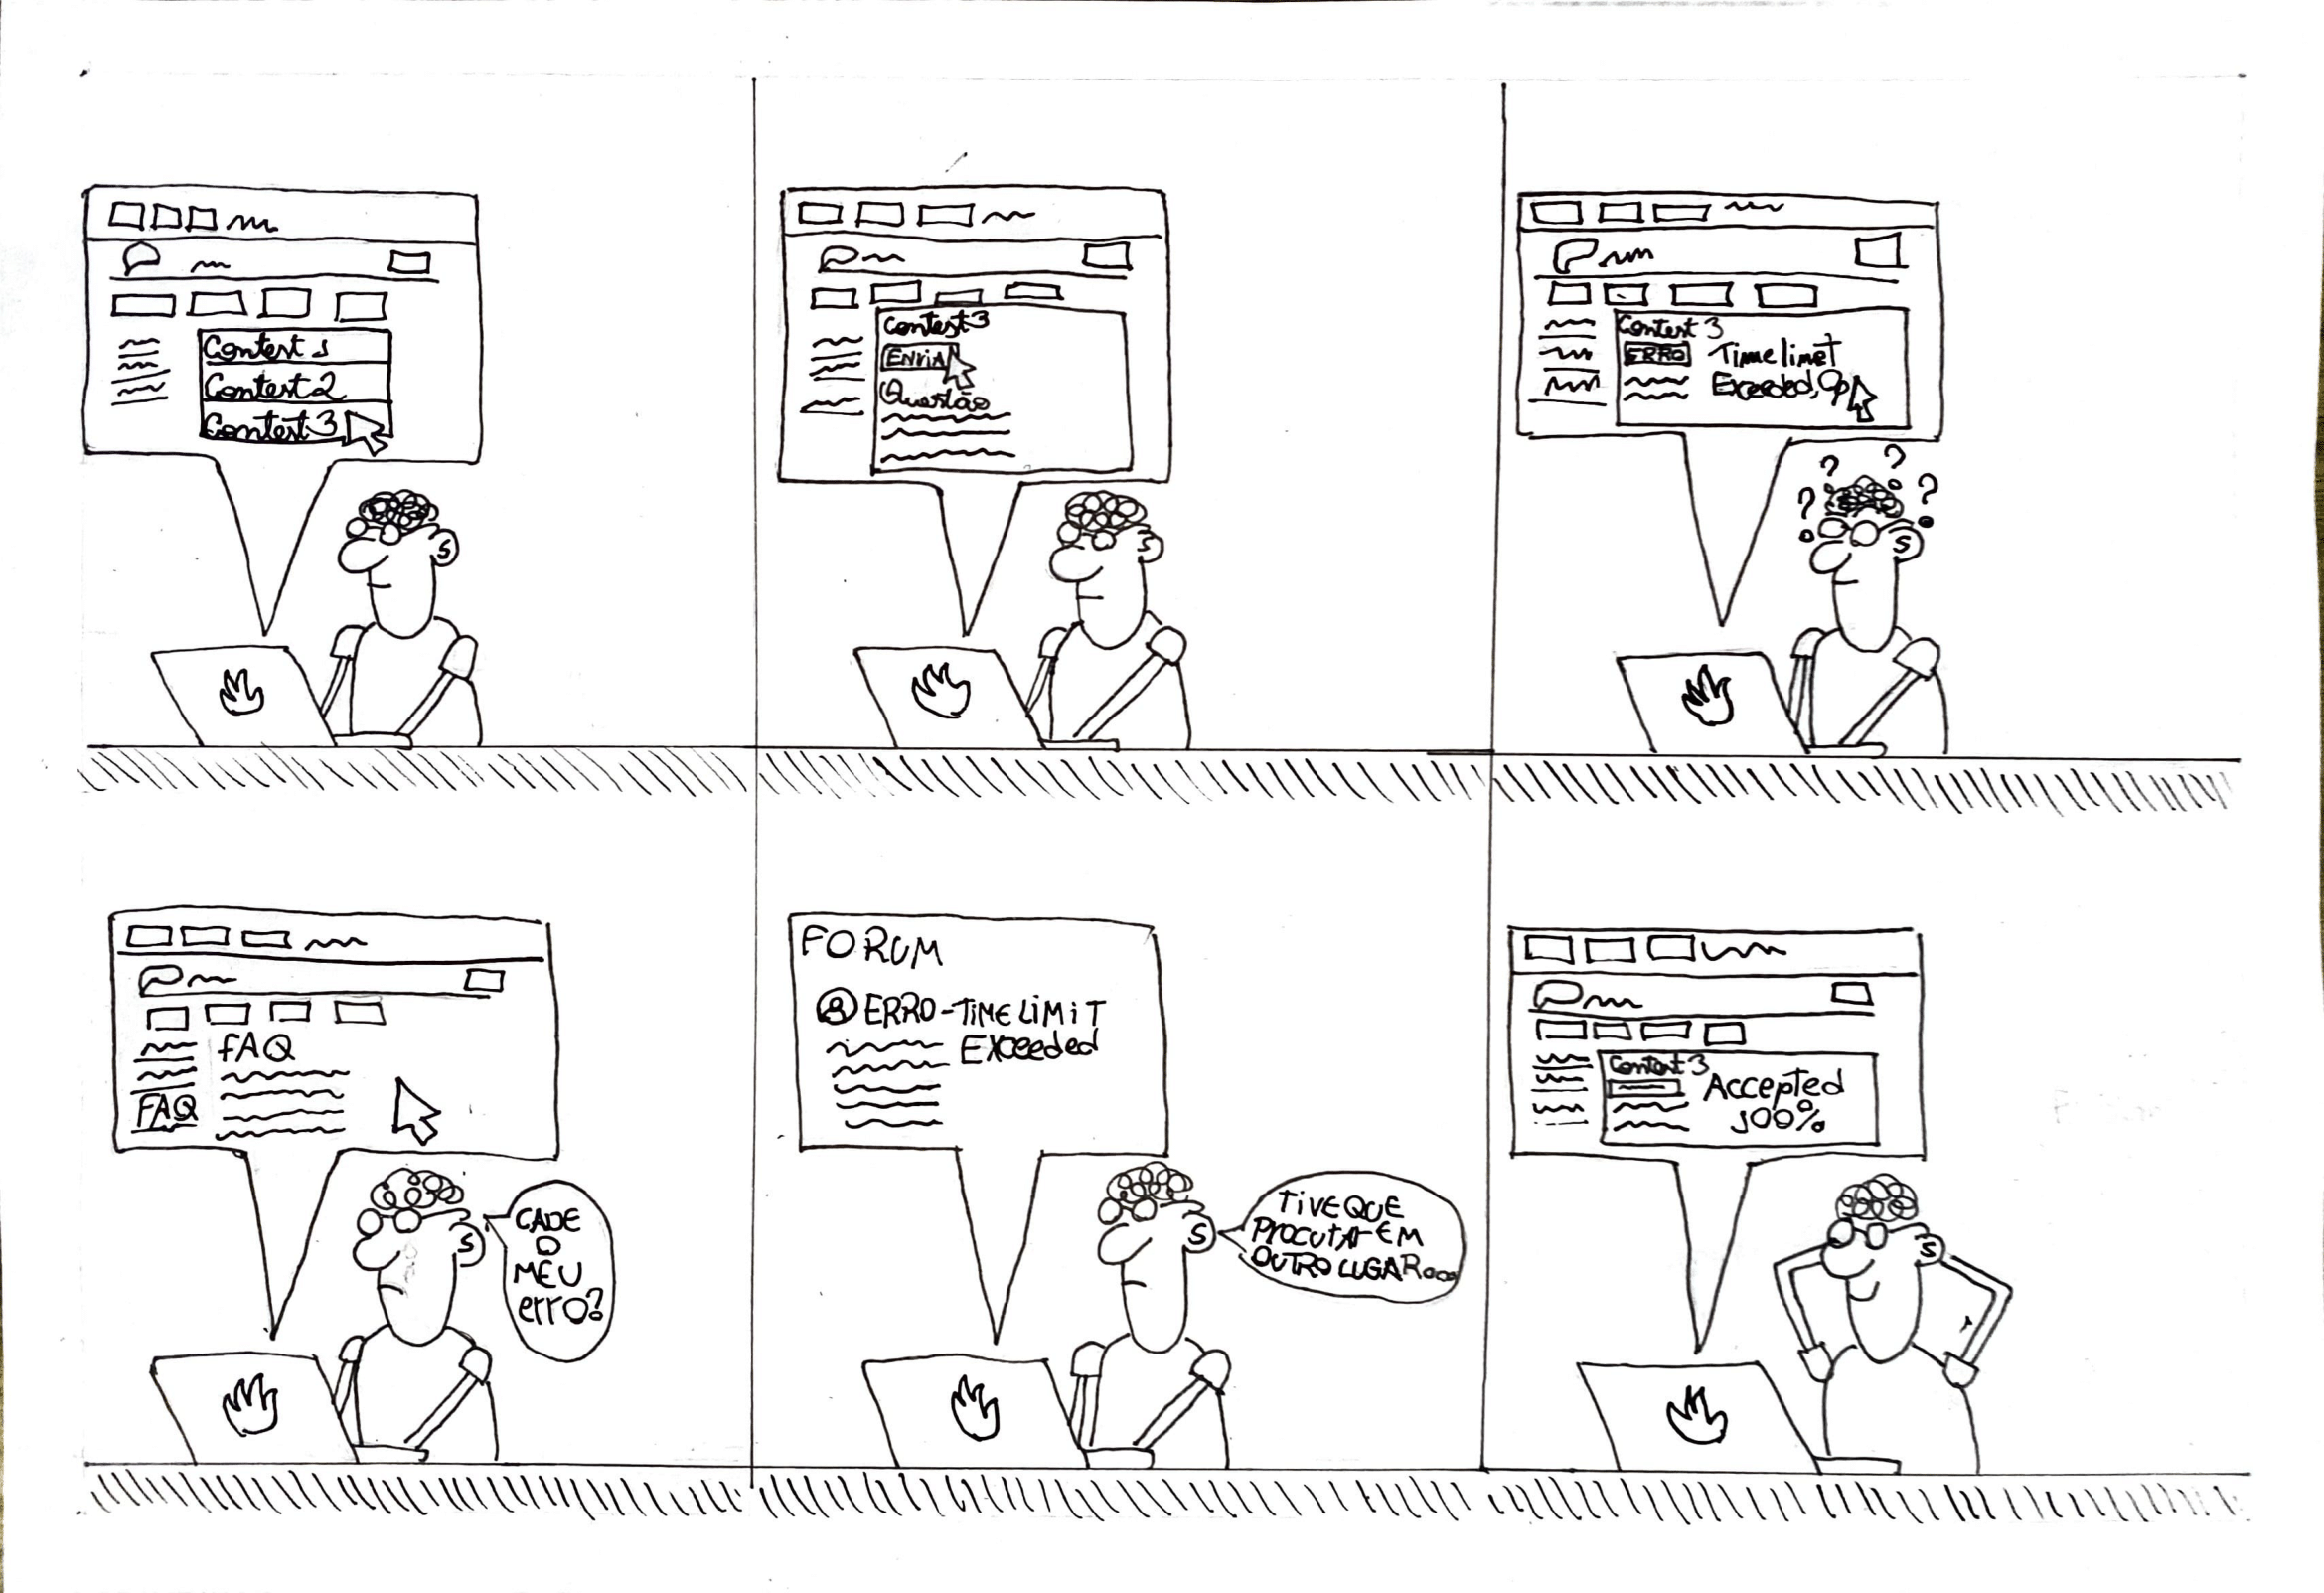 Contest 1
Contest 2
Contest 3
Contest 3
ENViA
Questão
Contest 3
ERRO Time limet
Exceeded, 0p
? ? ? ?
FAQ
FAQ
CADE
O
MEU
erro?
FORUM
ERRO-TiME LiMiT
Exceeded
TiVE QUE
PROCUTAR EM
OUTRO LUGAR...
Contest 3
Accepted
100%